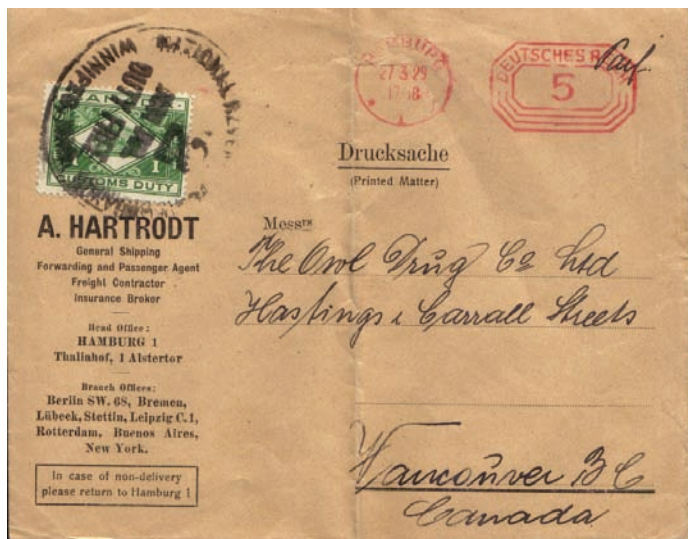 HAMBURG
27.3.29
17-18
1
DEUTSCHES REICH
5
WINNIPEG
NATIONAL REVENUE
CANADA
DUTY FREE
1 1
CUSTOMS DUTY
Drucksache
(Printed Matter)
A. HARTRODT
General Shipping
Forwarding and Passenger Agent
Freight Contractor
Insurance Broker
Head Office:
HAMBURG 1
Thaliahof, 1 Alstertor
Branch Offices:
Berlin SW. 68, Bremen,
Lübeck, Stettin, Leipzig C. 1,
Rotterdam, Buenos Aires,
New York.
In case of non-delivery
please return to Hamburg 1
Messrs
The Owl Drug Co Ltd
Hastings & Carrall Streets
Vancoŭver B C
Canada